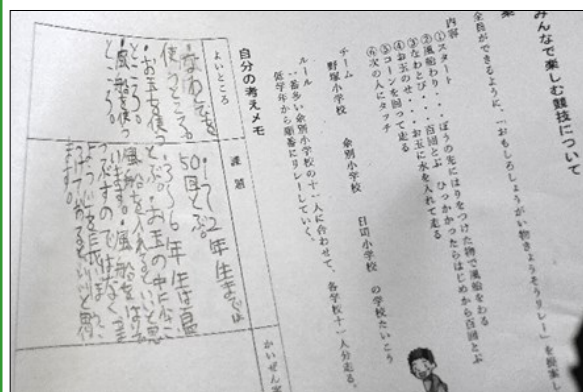 みんなで楽しむ競技について
全員ができるように、「おもしろしょうがい物きょうそうリレー」を提案し
内容
①スタート
②風船わり・・・ぼうの先にはりをつけた物で風船をわる
③なわとび・・・百回とぶ ひっかかったらはじめから百回とぶ
④お玉のせ・・・お玉に水を入れて走る
⑤コーンを回って走る
⑥次の人にタッチ
チーム
野塚小学校 余別小学校 日司小学校 の学校たいこう
ルール
一番多い余別小学校の十一人に合わせて、各学校十一人分走る。
低学年から順番にリレーしていく。
自分の考えメモ
よいところ
・なわとびを
使うところ。
・お玉を使う
ところ。
・風船を使う
ところ。
課題
・1〜2年生までは
50回とぶ。3〜6年生は百回
とぶ。・お玉の中に
風船を入れるといいと思
います。・風船をはりで
つぶすのではなく
ます。
かいぜん